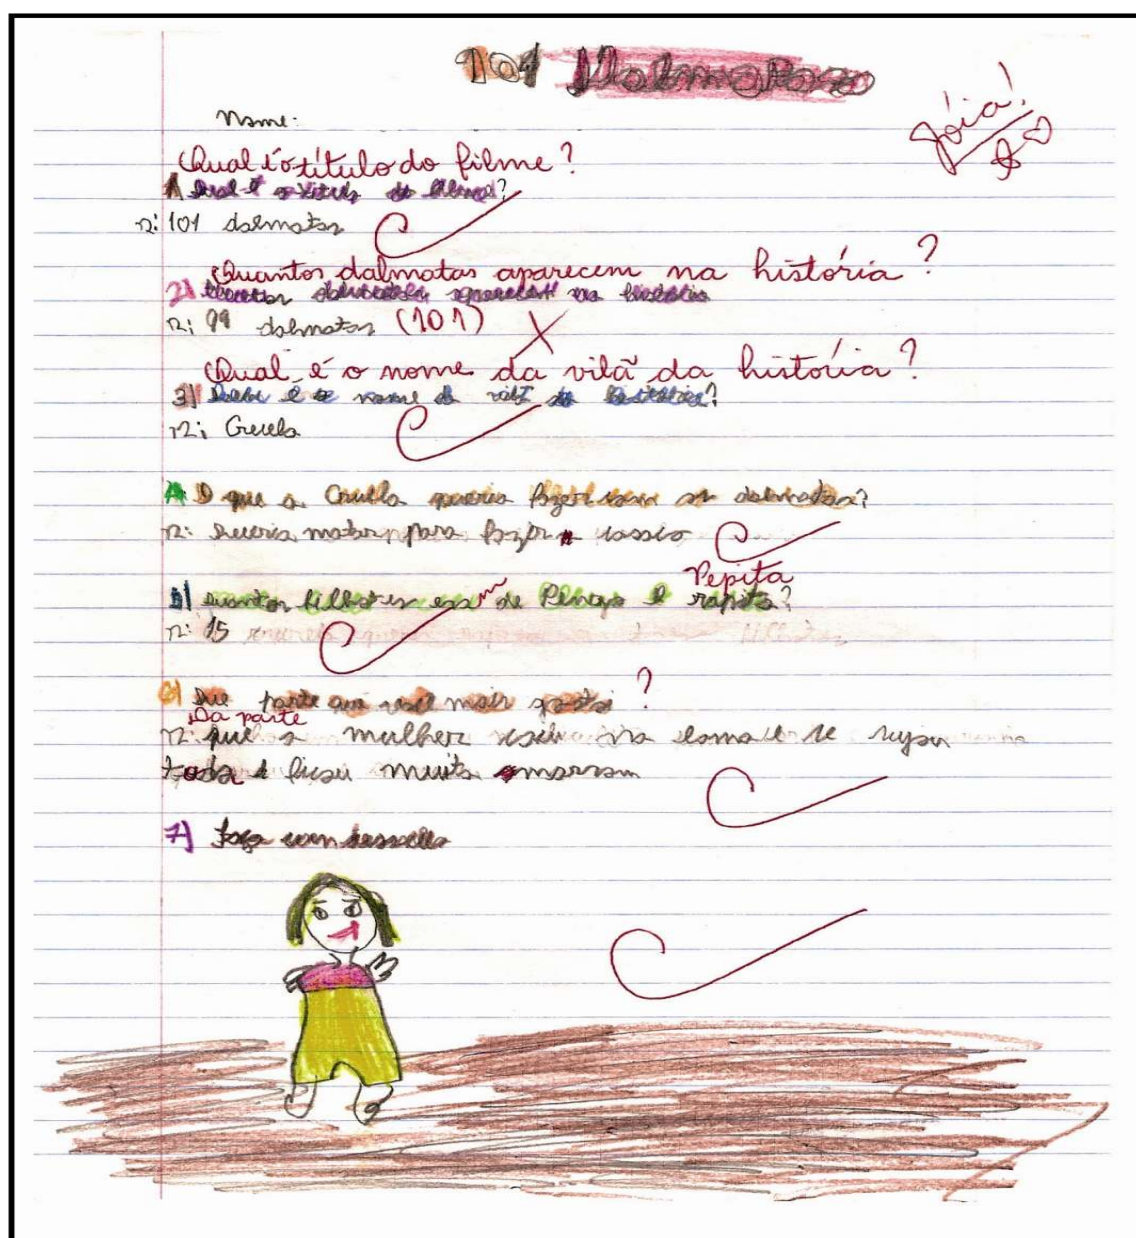 101 Dalmatas
Jóia!
Nome:
Qual é o título do filme?
1) Qual é o titulo do filme?
r: 101 dalmatas
Quantos dalmatas aparecem na história?
2) dalmatas aparecem na história
r: 99 dalmatas (101)
Qual é o nome da vilã da história?
3) é o nome da da história?
r: Cruela
A) O que a Cruella queria fazer com os dalmatas?
r: queria matar para fazer casaco
B) Quantos filhotes eram de Pengo e rapita?
Pepita
r: 15
C) Que parte que você mais gostou?
Da parte
r: que a mulher caiu na lama e se sujou
toda e ficou muito
7) Faça